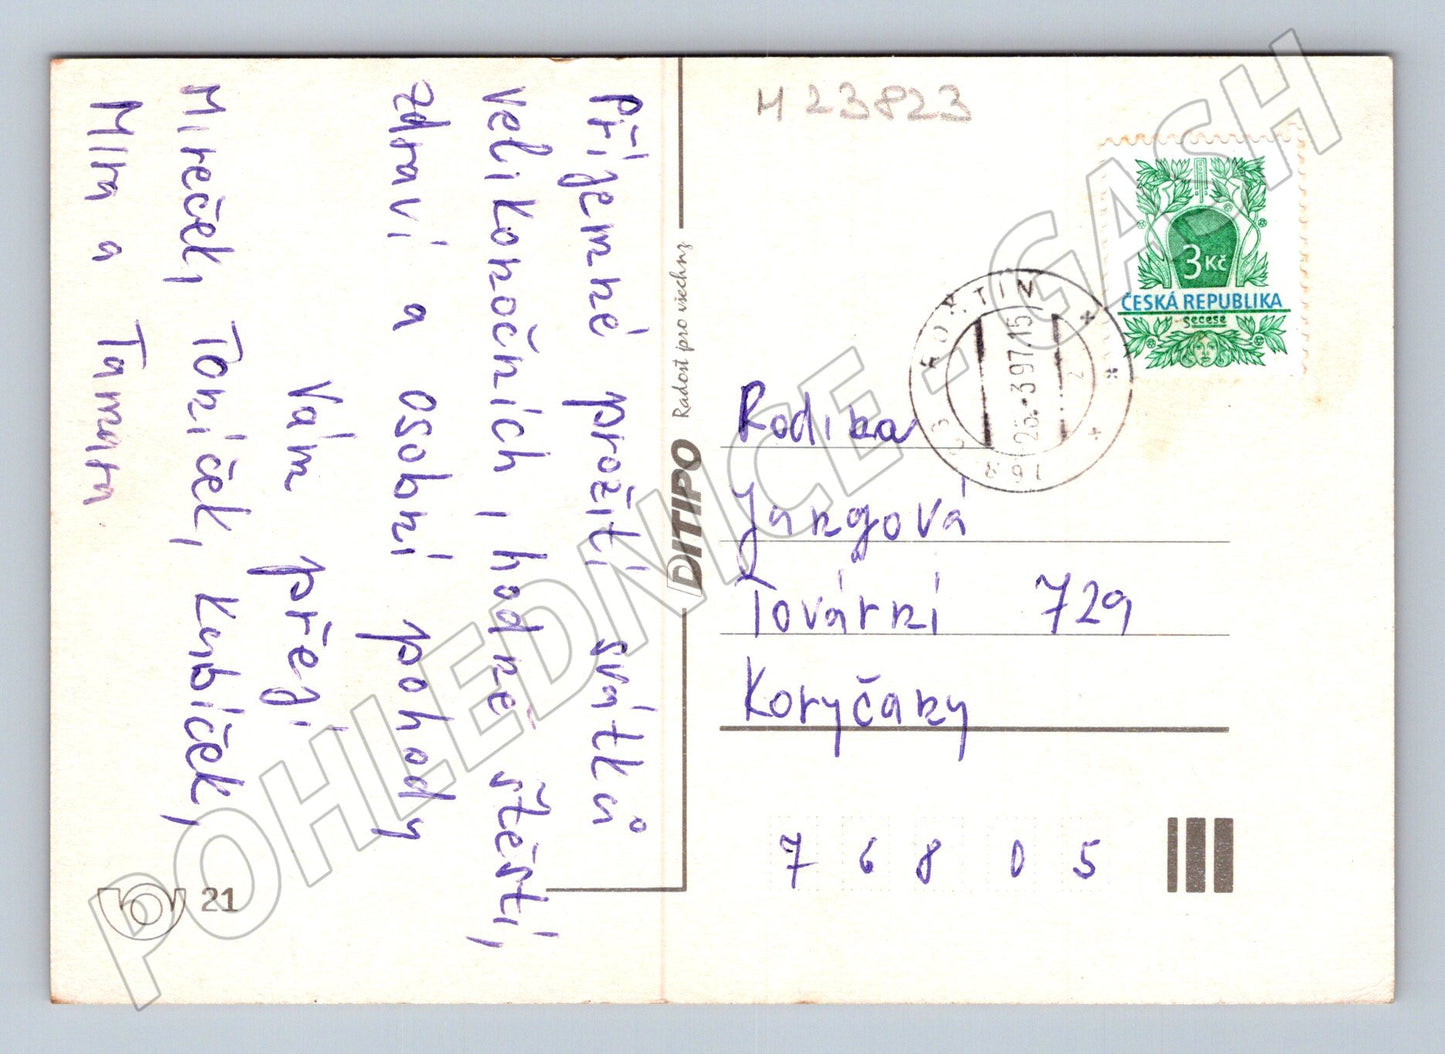 Příjemné prožití svátků
velikonočních, hodně štěstí,
zdraví a osobní pohody
Vám přejí
Mireček, Toníček, Kubíček,
Míra a Tamara
21
Radost pro všechny
DITIPO
M 23823
3 Kč
ČESKÁ REPUBLIKA
secese
26.-3.97.15
Rodina
Jungová
Tovární 729
Koryčany
76805
POHLEDNICE - GASH